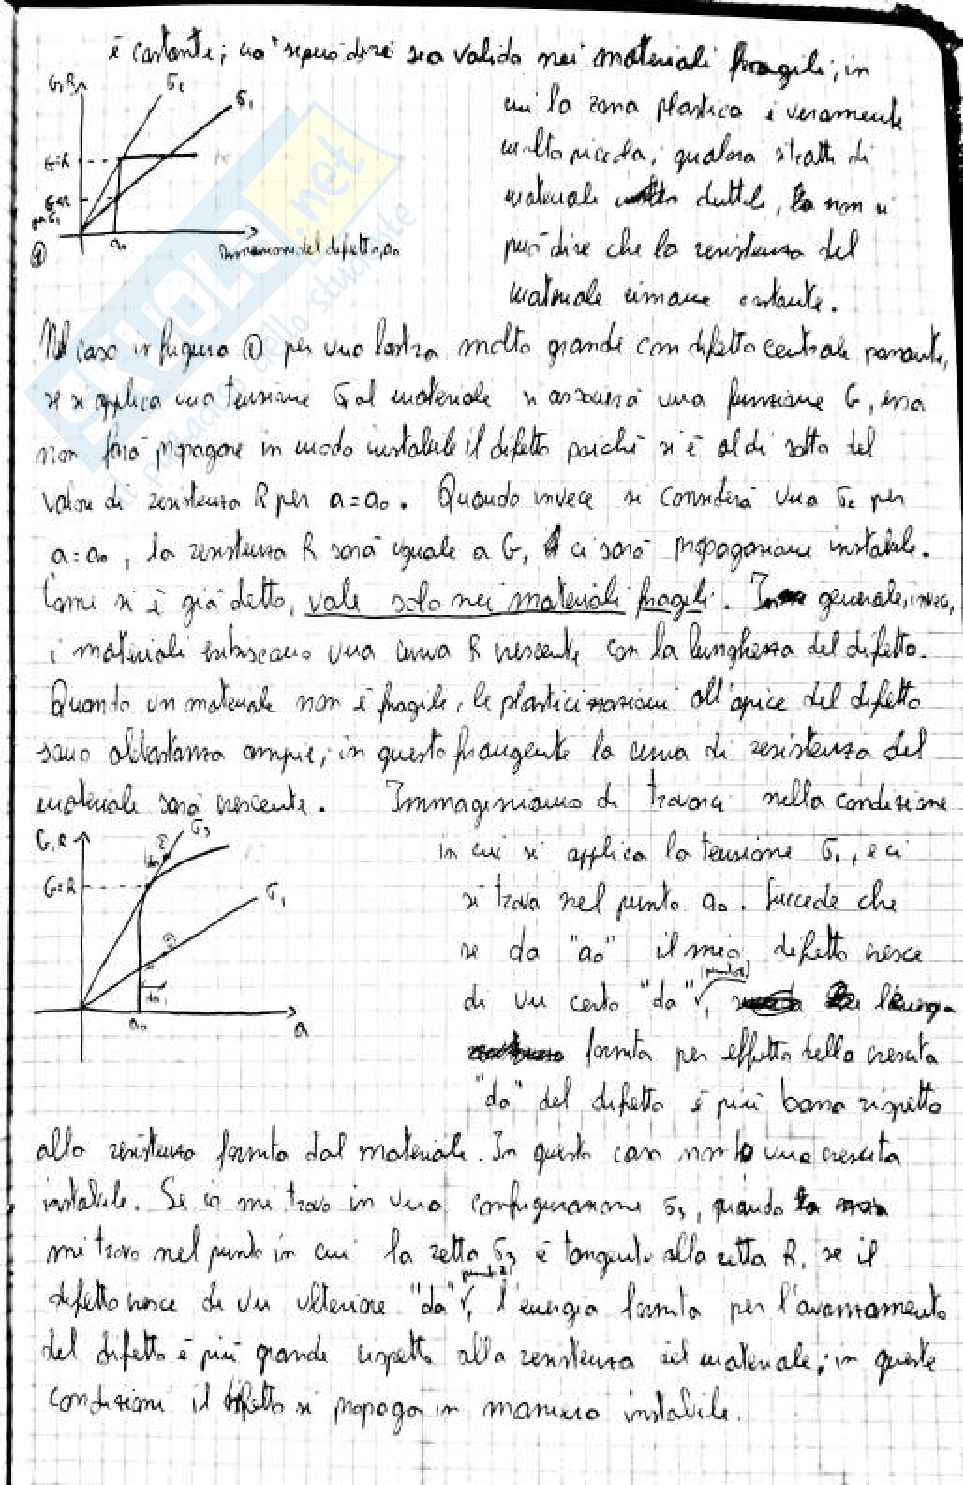 è costante; ciò si può dire sia valido nei materiali fragili, in
G,R
σ2
σ1
cui la zona plastica è veramente
G=R
molto piccola; qualora si tratti di
materiale duttile, non si
a0
Dimensioni del difetto, a0
può dire che la resistenza del
①
materiale rimane costante.
Nel caso in figura ① per una lastra molto grande con difetto centrale passante,
se si applica una tensione σ al materiale si assocerà una funzione G, essa
non farà propagare in modo instabile il difetto poiché si è al di sotto del
valore di resistenza R per a=a0. Quando invece si considera una σ2 per
a=a0, la resistenza R sarà uguale a G, ci sarà propagazione instabile.
Come si è già detto, vale solo nei materiali fragili. In generale, invece,
i materiali esibiscono una curva R crescente con la lunghezza del difetto.
Quando un materiale non è fragile, le plasticizzazioni all'apice del difetto
sono abbastanza ampie; in questo frangente la curva di resistenza del
materiale sarà crescente. Immaginiamo di trovarci nella condizione
G,R
σ3
in cui si applica la tensione σ1, e ci
G=R
σ1
si trova nel punto a0. Succede che
se da "a0" il mio difetto cresce
di un certo "da", l'energia
a0
a
fornita per effetto della crescita
"da" del difetto è più bassa rispetto
alla resistenza fornita dal materiale. In questo caso non ho una crescita
instabile. Se io mi trovo in una configurazione σ3, quando
mi trovo nel punto in cui la retta σ3 è tangente alla retta R, se il
difetto cresce di un ulteriore "da", l'energia fornita per l'avanzamento
del difetto è più grande rispetto alla resistenza del materiale; in queste
condizioni il difetto si propaga in maniera instabile.